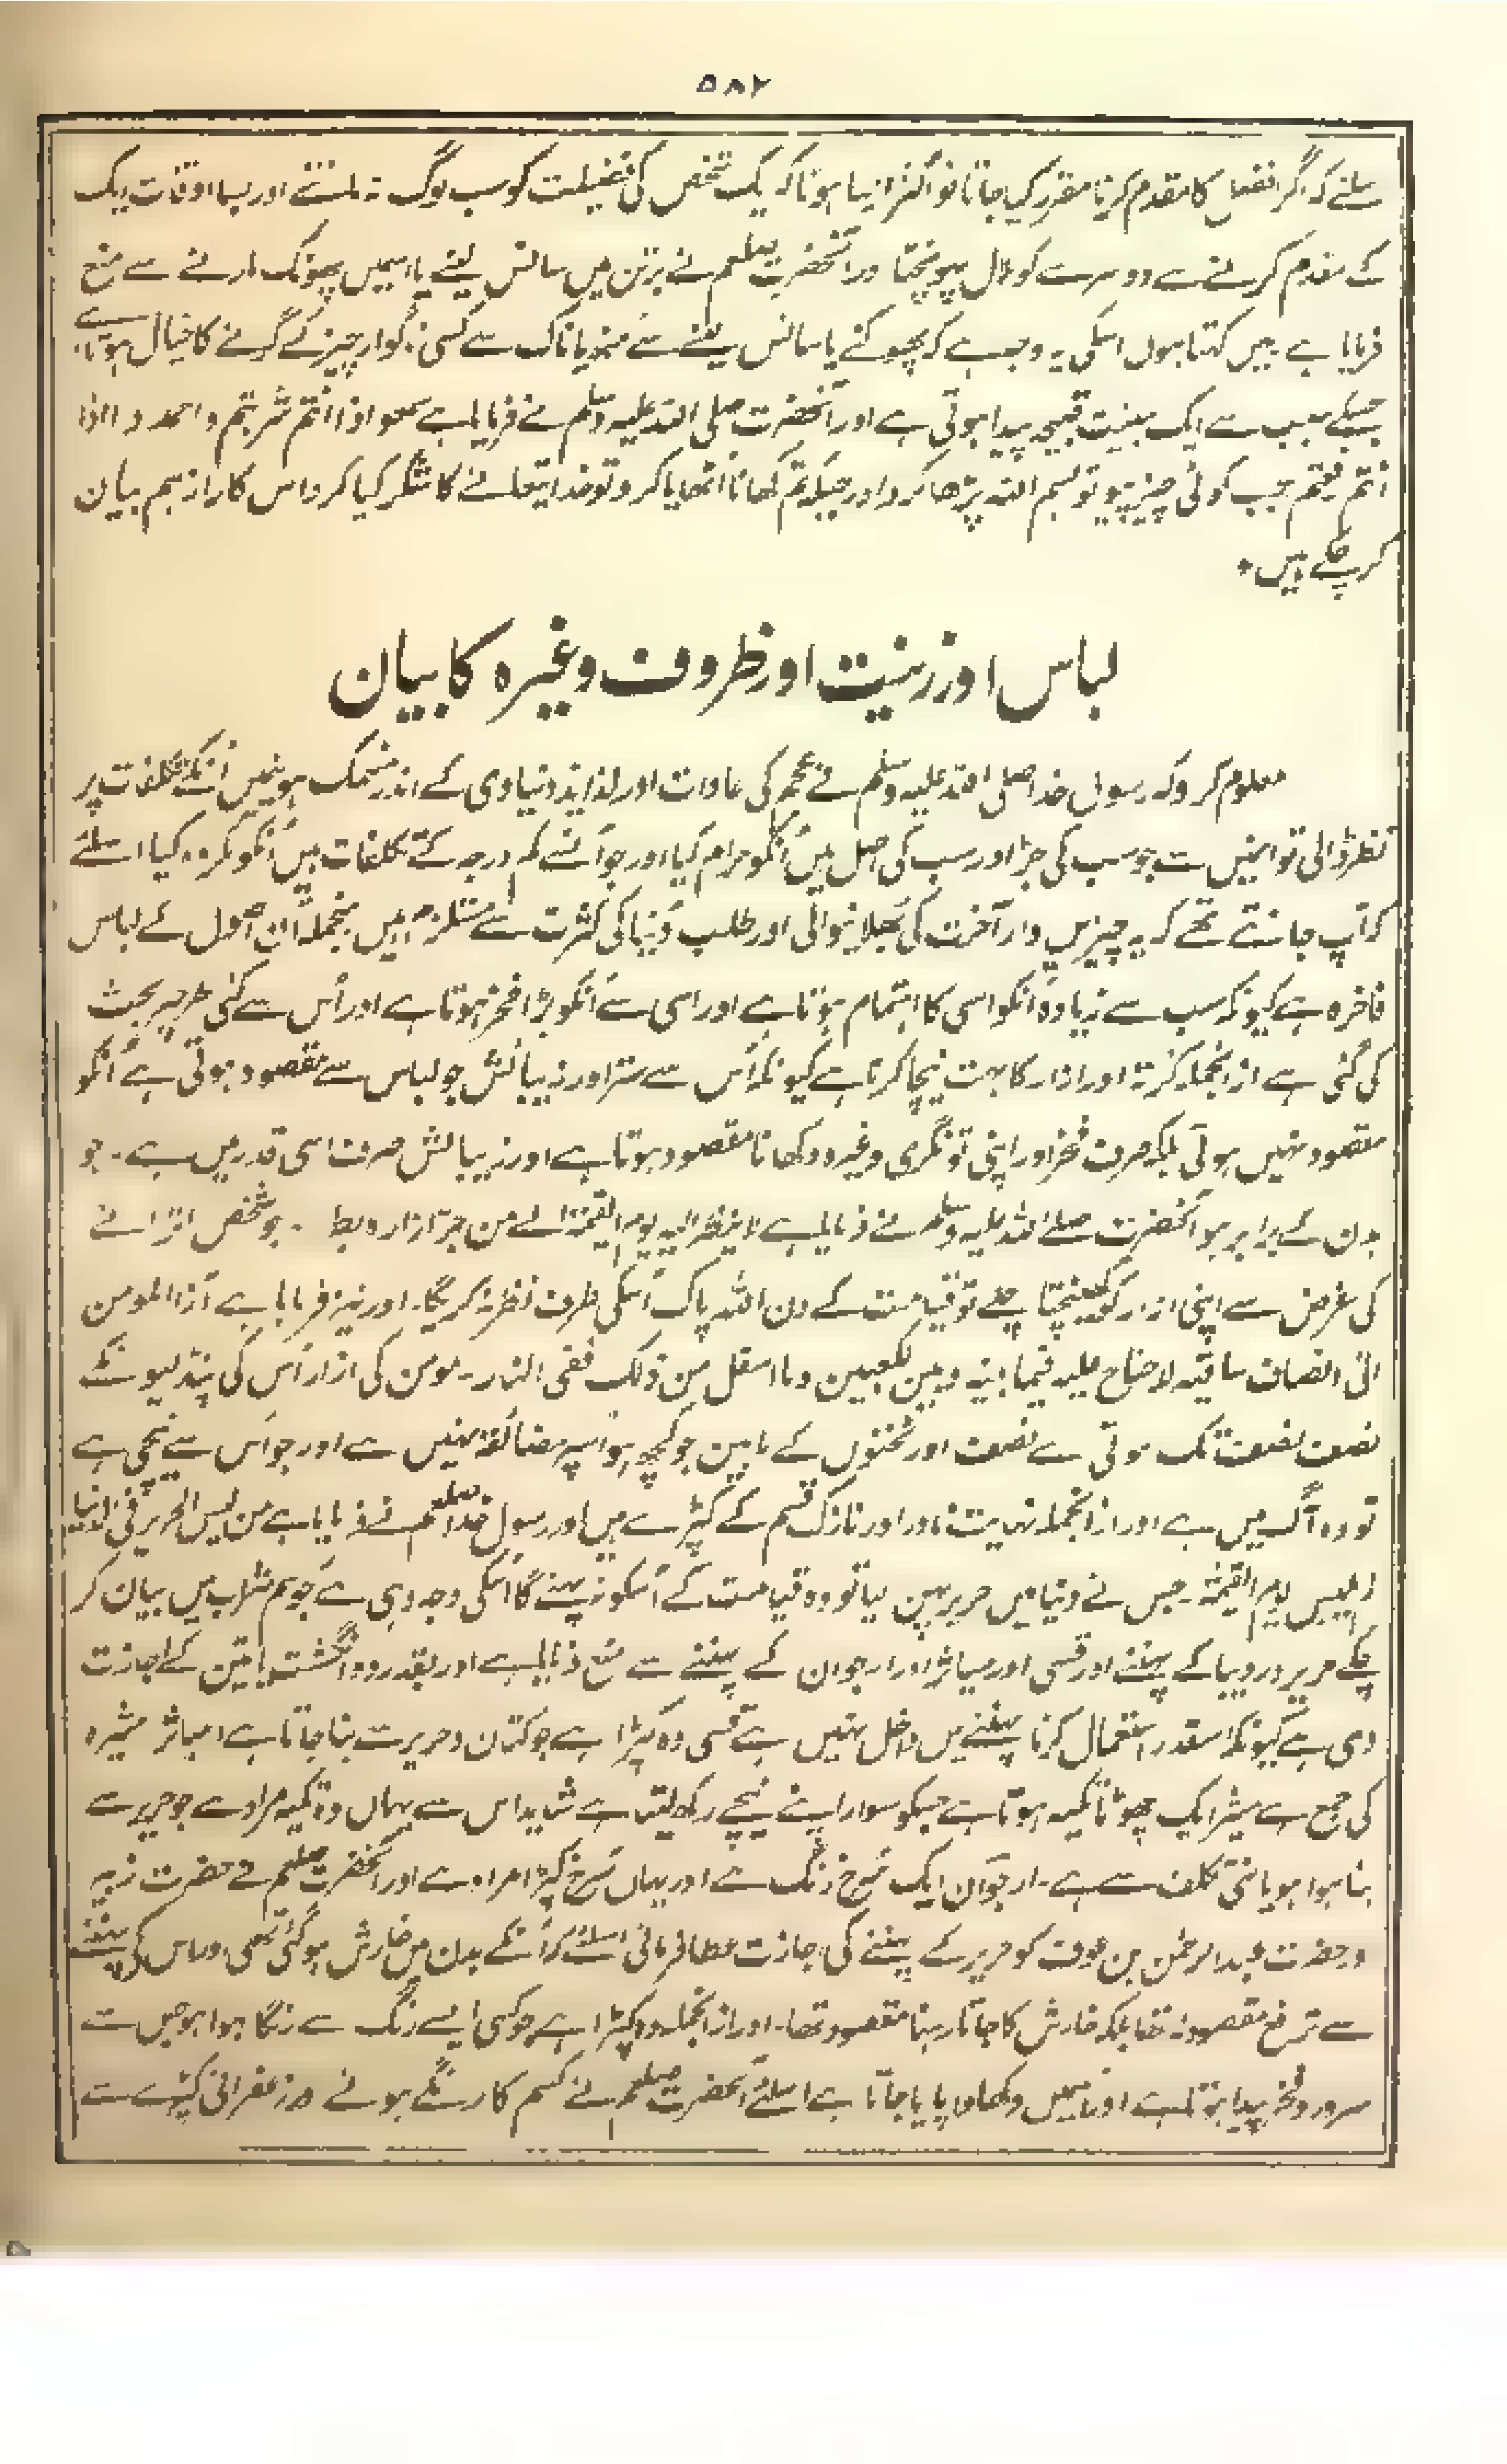 ۵۸۲
سلئے کہ اگر افضل کا مقدم کرنا مقرر کیا جاتا تو اکثر ایسا ہوتا کہ یک شخص کی فضیلت کو سب لوگ نہ مانتے اور بسا اوقات ایک
کے مقدم کرنے سے دوسرے کو ملال پہونچتا اور آنحضرت صلعم نے برتن میں سانس لینے یا اسمیں پھونک مارنے سے منع
فرمایا ہے میں کہتا ہوں اسکی یہ وجہ ہے کہ پھونکنے یا سانس لینے سے منہ یا ناک سے کسی ناگوار چیز کے گرنے کا خیال ہوتا ہے
جسکے سبب سے ایک ہیئت قبیحہ پیدا ہوتی ہے اور آنحضرت صلی اللہ علیہ وسلم نے فرمایا ہے سموا اذا انتم شربتم واحمدوا اذا
انتم رفعتم جب کوئی چیز پیو تو بسم اللہ پڑھا کرو اور جبکہ تم کھانا اُٹھایا کرو تو خدا یتعالے کا شکر کیا کرو اس کا راز ہم بیان
کر چکے ہیں ٭
لباس اور زینت اور ظروف وغیرہ کا بیان
معلوم کرو کہ رسول خدا صلی اللہ علیہ وسلم نے عجم کی عادات اور لذایذ دنیاوی کے اندر منہمک ہونیمیں اُنکے تکلفات پر
نظر ڈالی تو انمیں سے جو سب کی جڑ اور سب کی اصل ہیں اُنکو حرام کیا اور جو اُنسے کم درجہ کے تکلفات ہیں اُنکو مکروہ کیا اسلئے
کہ آپ جانتے تھے کہ یہ چیزیں دار آخرت کی بھلانیوالی اور طلب دنیا کی کثرت سے مستلزم ہیں منجملہ اُن اصول کے لباس
فاخرہ ہے کیونکہ سب سے زیادہ اُنکو اسی کا اہتمام ہوتا ہے اور اسی سے اُنکو بڑا فخر ہوتا ہے اور اُس سے کئی طرحپر بحث
کی گئی ہے از انجملہ کرتہ اور ازار کا بہت نیچا کرنا ہے کیونکہ اُس سے ستر اور زیبائش جو لباس سے مقصود ہوتی ہے اُنکو
مقصود نہیں ہوتی بلکہ صرف فخر اور اپنی تونگری وغیرہ دکھانا مقصود ہوتا ہے اور زیبائش صرف اسی قدر میں ہے۔ جو
بدن کے برابر ہو آنحضرت صلے اللہ علیہ وسلم نے فرمایا ہے لا ینظر الیہ یوم القیمۃ الے من جر ازارہ بطرا ۔ جو شخص اترانے
کی غرض سے اپنی ازار کو کھینچتا چلے تو قیامت کے دن اللہ پاک اُسکی طرف نظر نہ کریگا۔ اور نیز فرمایا ہے ازار المومن
الی انصاف ساقیہ لا جناح علیہ فیما بینہ و بین الکعبین وما اسفل من ذلک ففی النار۔ مومن کی ازار اُس کی پنڈلیونکے
نصف نصف تک ہوتی ہے نصف اور ٹخنوں کے مابین جو کچھ ہو اُسپر مضائقہ نہیں ہے اور جو اُس سے نیچی ہے
تو وہ آگ میں ہے اور از انجملہ نہایت نادر اور نازک قسم کے کپڑے ہیں اور رسول خدا صلعم نے فرمایا ہے من لبس الحریر فی الدنیا
لم یلبس یوم القیمۃ ۔ جس نے دنیا میں حریر پہن لیا تو وہ قیامت کے اُسکو نہ پہنے گا اُسکی وجہ وہی ہے جو ہم شراب میں بیان کر
چکے حریر اور دیبا کے پہننے اور قسی اور میاثر اور ارجوان کے پہننے سے منع فرمایا ہے اور بقدر دو انگشت یا تین کے اجازت
دی ہے کیونکہ اسقدر استعمال کرنا پہننے میں داخل نہیں ہے قسی وہ کپڑا ہے جو کتان و حریر سے بنا جاتا ہے میاثر میثرہ
کی جمع ہے میثر ایک چھوٹا تکیہ ہوتا ہے جسکو سوار اپنے نیچے رکھ لیتا ہے شاید اس سے یہاں وہ تکیہ مراد ہے جو حریر سے
بنا ہوا ہو یا نہی تکلف سے ہے۔ ارجوان ایک سُرخ رنگ ہے اور یہاں سُرخ کپڑا مراد ہے اور آنحضرت صلعم نے حضرت زبیر
و حضرت عبدالرحمٰن بن عوف کو حریر کے پہننے کی اجازت عطا فرمائی اسلئے کہ اُنکے بدن میں خارش ہوگئی تھی اور اس کی پہننے
سے ترفع مقصود نہ تھا بلکہ خارش کا جاتا رہنا مقصود تھا۔ اور از انجملہ وہ کپڑا ہے جو کسی ایسے رنگ سے رنگا ہوا ہو جس سے
سرور و فخر پیدا ہوتا ہے اور اُسمیں دکھاوا پایا جاتا ہے اسلئے آنحضرت صلعم نے کسم کا رنگے ہوئے اور زعفرانی کپڑے سے